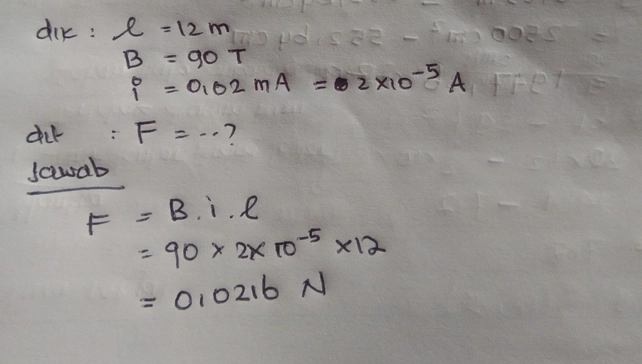 dik : l = 12 m
B = 90 T
i = 0,02 mA = 2 x 10⁻⁵ A
dit : F = ...?
Jawab
F = B . i . l
= 90 x 2 x 10⁻⁵ x 12
= 0,0216 N